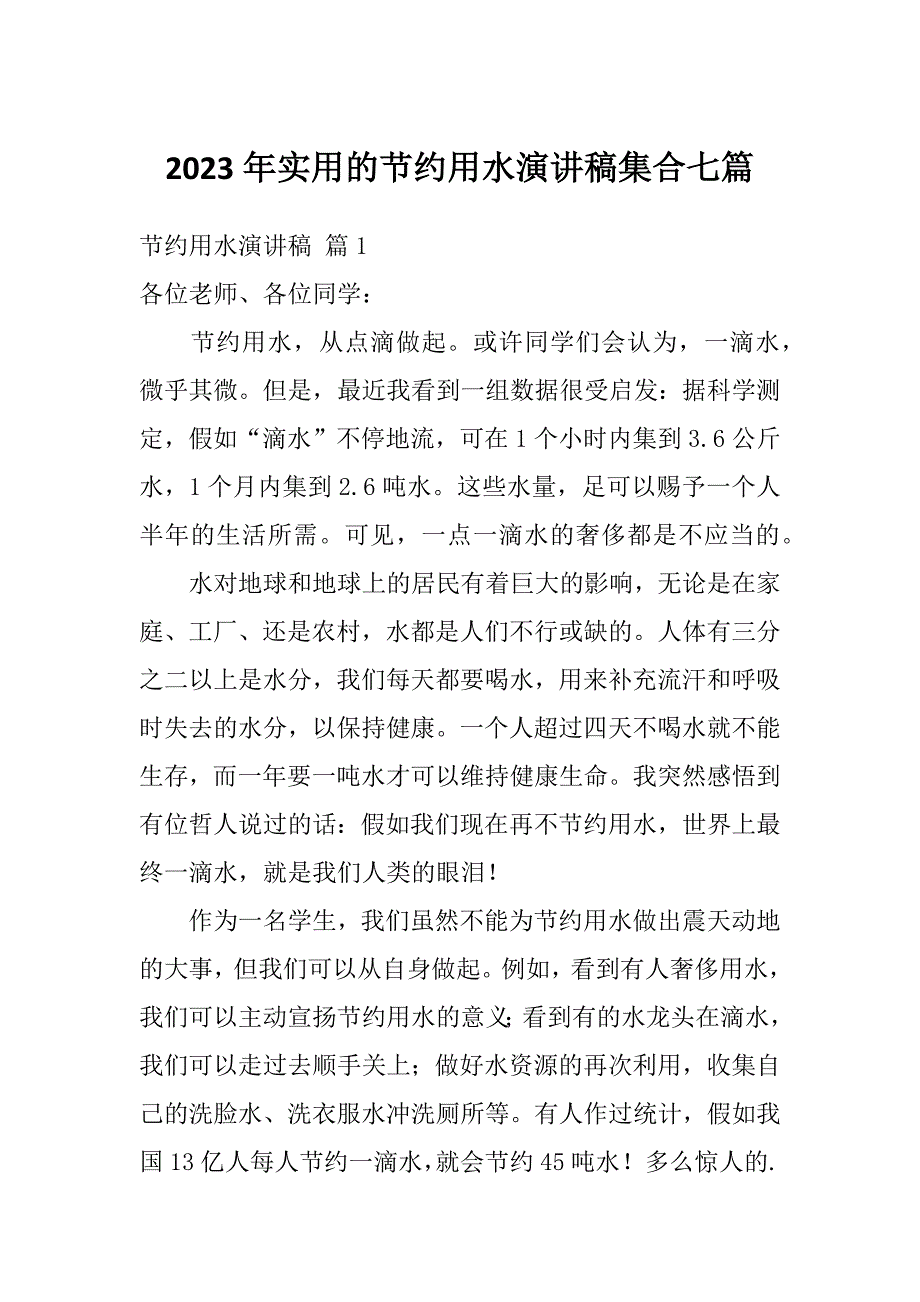 2023 年实用的节约用水演讲稿集合七篇
节约用水演讲稿 篇 1
各位老师、各位同学：
节约用水，从点滴做起。或许同学们会认为，一滴水，
微乎其微。但是，最近我看到一组数据很受启发：据科学测
定，假如“滴水”不停地流，可在 1 个小时内集到 3.6 公斤
水，1 个月内集到 2.6 吨水。这些水量，足可以赐予一个人
半年的生活所需。可见，一点一滴水的奢侈都是不应当的。
水对地球和地球上的居民有着巨大的影响，无论是在家
庭、工厂、还是农村，水都是人们不行或缺的。人体有三分
之二以上是水分，我们每天都要喝水，用来补充流汗和呼吸
时失去的水分，以保持健康。一个人超过四天不喝水就不能
生存，而一年要一吨水才可以维持健康生命。我突然感悟到
有位哲人说过的话：假如我们现在再不节约用水，世界上最
终一滴水，就是我们人类的眼泪！
作为一名学生，我们虽然不能为节约用水做出震天动地
的大事，但我们可以从自身做起。例如，看到有人奢侈用水，
我们可以主动宣扬节约用水的意义；看到有的水龙头在滴水，
我们可以走过去顺手关上；做好水资源的再次利用，收集自
己的洗脸水、洗衣服水冲洗厕所等。有人作过统计，假如我
国 13 亿人每人节约一滴水，就会节约 45 吨水！多么惊人的.